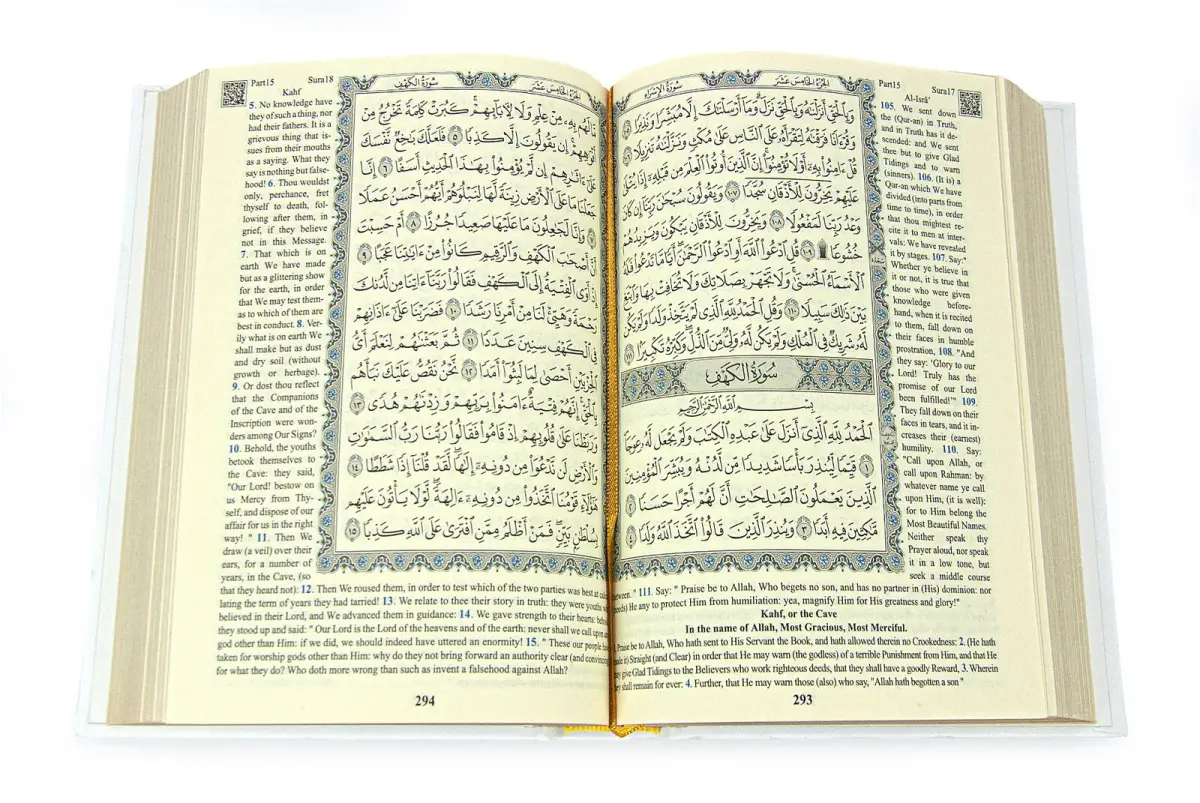 الجزء الخامس عشر
سورة الإسراء
وَبِالْحَقِّ أَنزَلْنَٰهُ وَبِالْحَقِّ نَزَلَ وَمَآ أَرْسَلْنَٰكَ إِلَّا مُبَشِّرًا وَنَذِيرًا ١٠٥
وَقُرْءَانًا فَرَقْنَٰهُ لِتَقْرَأَهُۥ عَلَى النَّاسِ عَلَىٰ مُكْثٍ وَنَزَّلْنَٰهُ تَنزِيلًا ١٠٦
قُلْ ءَامِنُوا۟ بِهِۦٓ أَوْ لَا تُؤْمِنُوٓا۟ إِنَّ الَّذِينَ أُوتُوا۟ الْعِلْمَ مِن قَبْلِهِۦٓ إِذَا يُتْلَىٰ
عَلَيْهِمْ يَخِرُّونَ لِلْأَذْقَانِ سُجَّدًا ١٠٧ وَيَقُولُونَ سُبْحَٰنَ رَبِّنَآ إِن كَانَ
وَعْدُ رَبِّنَا لَمَفْعُولًا ١٠٨ وَيَخِرُّونَ لِلْأَذْقَانِ يَبْكُونَ وَيَزِيدُهُمْ
خُشُوعًا ۩ ١٠٩ قُلِ ادْعُوا۟ اللَّهَ أَوِ ادْعُوا۟ الرَّحْمَٰنَ أَيًّا مَّا تَدْعُوا۟ فَلَهُ
الْأَسْمَآءُ الْحُسْنَىٰ وَلَا تَجْهَرْ بِصَلَاتِكَ وَلَا تُخَافِتْ بِهَا وَابْتَغِ
بَيْنَ ذَٰلِكَ سَبِيلًا ١١٠ وَقُلِ الْحَمْدُ لِلَّهِ الَّذِي لَمْ يَتَّخِذْ وَلَدًا وَلَمْ يَكُن
لَّهُۥ شَرِيكٌ فِي الْمُلْكِ وَلَمْ يَكُن لَّهُۥ وَلِيٌّ مِّنَ الذُّلِّ وَكَبِّرْهُ تَكْبِيرًا ١١١
سُورَةُ الْكَهْفِ
بِسْمِ اللَّهِ الرَّحْمَٰنِ الرَّحِيمِ
الْحَمْدُ لِلَّهِ الَّذِيٓ أَنزَلَ عَلَىٰ عَبْدِهِ الْكِتَٰبَ وَلَمْ يَجْعَل لَّهُۥ عِوَجَا
١ قَيِّمًا لِّيُنذِرَ بَأْسًا شَدِيدًا مِّن لَّدُنْهُ وَيُبَشِّرَ الْمُؤْمِنِينَ
الَّذِينَ يَعْمَلُونَ الصَّٰلِحَٰتِ أَنَّ لَهُمْ أَجْرًا حَسَنًا ٢
مَّٰكِثِينَ فِيهِ أَبَدًا ٣ وَيُنذِرَ الَّذِينَ قَالُوا۟ اتَّخَذَ اللَّهُ وَلَدًا ٤
Part15 Sura17
Al-Isrâ'
105. We sent down
the (Qur-an) in Truth,
and in Truth has it de-
scended: and We sent
thee but to give Glad
Tidings and to warn
(sinners). 106. (It is) a
Qur-an which We have
divided (into parts from
time to time), in order
that thou mightest re-
cite it to men at inter-
vals: We have revealed
it by stages. 107. Say:"
Whether ye believe in
it or not, it is true that
those who were given
knowledge before-
hand, when it is recited
to them, fall down on
their faces in humble
prostration, 108. "And
they say: 'Glory to our
Lord! Truly has the
promise of our Lord
been fulfilled!'" 109.
They fall down on their
faces in tears, and it in-
creases their (earnest)
humility. 110. Say:
"Call upon Allah, or
call upon Rahman: by
whatever name ye call
upon Him, (it is well):
for to Him belong the
Most Beautiful Names.
Neither speak thy
Prayer aloud, nor speak
it in a low tone, but
seek a middle course
between. " 111. Say: " Praise be to Allah, Who begets no son, and has no partner in (His) dominion: nor
(needs) He any to protect Him from humiliation: yea, magnify Him for His greatness and glory!"
Kahf, or the Cave
In the name of Allah, Most Gracious, Most Merciful.
1. Praise be to Allah, Who hath sent to His Servant the Book, and hath allowed therein no Crookedness: 2. (He hath
made it) Straight (and Clear) in order that He may warn (the godless) of a terrible Punishment from Him, and that He
may give Glad Tidings to the Believers who work righteous deeds, that they shall have a goodly Reward, 3. Wherein
they shall remain for ever: 4. Further, that He may warn those (also) who say, "Allah hath begotten a son "
293
الجزء الخامس عشر
سورة الكهف
مَّا لَهُم بِهِۦ مِنْ عِلْمٍ وَلَا لِـَٔابَآئِهِمْ كَبُرَتْ كَلِمَةً تَخْرُجُ مِنْ
أَفْوَٰهِهِمْ إِن يَقُولُونَ إِلَّا كَذِبًا ٥ فَلَعَلَّكَ بَٰخِعٌ نَّفْسَكَ
عَلَىٰٓ ءَاثَٰرِهِمْ إِن لَّمْ يُؤْمِنُوا۟ بِهَٰذَا الْحَدِيثِ أَسَفًا ٦ إِنَّا
جَعَلْنَا مَا عَلَى الْأَرْضِ زِينَةً لَّهَا لِنَبْلُوَهُمْ أَيُّهُمْ أَحْسَنُ عَمَلًا
٧ وَإِنَّا لَجَٰعِلُونَ مَا عَلَيْهَا صَعِيدًا جُرُزًا ٨ أَمْ حَسِبْتَ
أَنَّ أَصْحَٰبَ الْكَهْفِ وَالرَّقِيمِ كَانُوا۟ مِنْ ءَايَٰتِنَا عَجَبًا ٩
إِذْ أَوَى الْفِتْيَةُ إِلَى الْكَهْفِ فَقَالُوا۟ رَبَّنَآ ءَاتِنَا مِن لَّدُنكَ
رَحْمَةً وَهَيِّئْ لَنَا مِنْ أَمْرِنَا رَشَدًا ١٠ فَضَرَبْنَا عَلَىٰٓ ءَاذَانِهِمْ
فِي الْكَهْفِ سِنِينَ عَدَدًا ١١ ثُمَّ بَعَثْنَٰهُمْ لِنَعْلَمَ أَيُّ
الْحِزْبَيْنِ أَحْصَىٰ لِمَا لَبِثُوٓا۟ أَمَدًا ١٢ نَّحْنُ نَقُصُّ عَلَيْكَ نَبَأَهُم
بِالْحَقِّ إِنَّهُمْ فِتْيَةٌ ءَامَنُوا۟ بِرَبِّهِمْ وَزِدْنَٰهُمْ هُدًى ١٣
وَرَبَطْنَا عَلَىٰ قُلُوبِهِمْ إِذْ قَامُوا۟ فَقَالُوا۟ رَبُّنَا رَبُّ السَّمَٰوَٰتِ
وَالْأَرْضِ لَن نَّدْعُوَا۟ مِن دُونِهِۦٓ إِلَٰهًا لَّقَدْ قُلْنَآ إِذًا شَطَطًا ١٤
هَٰٓؤُلَآءِ قَوْمُنَا اتَّخَذُوا۟ مِن دُونِهِۦٓ ءَالِهَةً لَّوْلَا يَأْتُونَ عَلَيْهِم
بِسُلْطَٰنٍۭ بَيِّنٍ فَمَنْ أَظْلَمُ مِمَّنِ افْتَرَىٰ عَلَى اللَّهِ كَذِبًا ١٥
Part15 Sura18
Kahf
5. No knowledge have
they of such a thing, nor
had their fathers. It is a
grievous thing that is-
sues from their mouths
as a saying. What they
say is nothing but false-
hood! 6. Thou wouldst
only, perchance, fret
thyself to death, fol-
lowing after them, in
grief, if they believe
not in this Message.
7. That which is on
earth We have made
but as a glittering show
for the earth, in order
that We may test them-
as to which of them are
best in conduct. 8. Ver-
ily what is on earth We
shall make but as dust
and dry soil (without
growth or herbage).
9. Or dost thou reflect
that the Companions
of the Cave and of the
Inscription were won-
ders among Our Signs?
10. Behold, the youths
betook themselves to
the Cave: they said,
"Our Lord! bestow on
us Mercy from Thy-
self, and dispose of our
affair for us in the right
way! " 11. Then We
draw (a veil) over their
ears, for a number of
years, in the Cave, (so
that they heard not): 12. Then We roused them, in order to test which of the two parties was best at calcu-
lating the term of years they had tarried! 13. We relate to thee their story in truth: they were youths who
believed in their Lord, and We advanced them in guidance: 14. We gave strength to their hearts: behold,
they stood up and said: " Our Lord is the Lord of the heavens and of the earth: never shall we call upon any
god other than Him: if we did, we should indeed have uttered an enormity! 15. " These our people have
taken for worship gods other than Him: why do they not bring forward an authority clear (and convincing)
for what they do? Who doth more wrong than such as invent a falsehood against Allah?
294